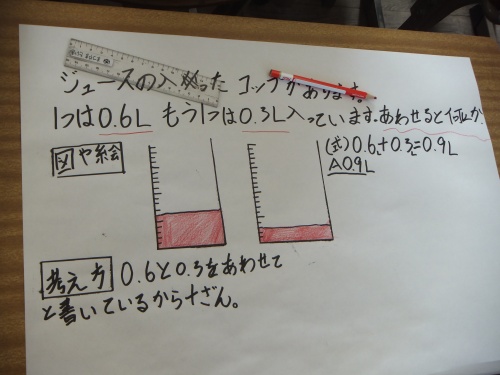 ジュースの入った コップがあります。
1つは0.6L もう1つは0.3L入っています。あわせると何Lか?
図や絵
(式)0.6L+0.3L=0.9L
A0.9L
考え方 0.6と0.3をあわせて
と書いているからたざん。